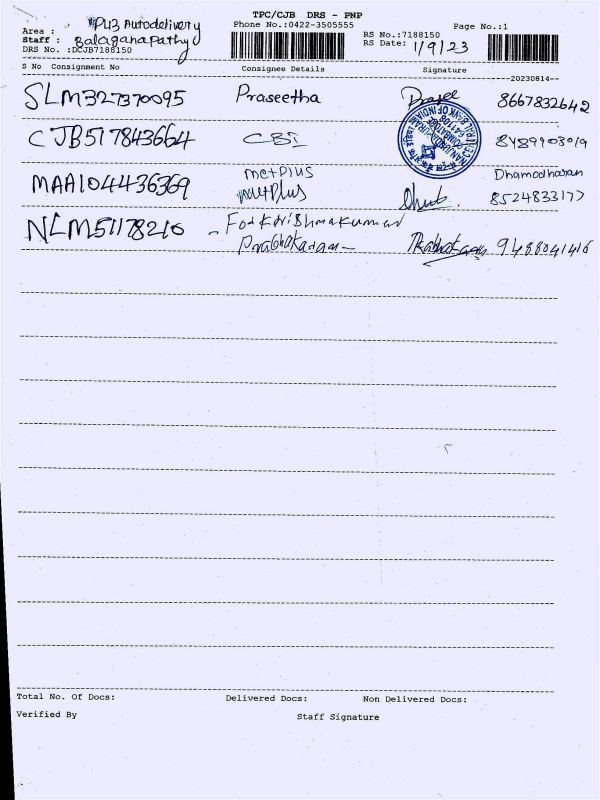 TPC/CJB DRS - PNP
Area : PU3 Autodelivery Phone No.:0422-3505555 Page No.:1
Staff : Balaganapathy RS No.:7188150
DRS No. :DCJB7188150 RS Date: 1/9/23
S No Consignment No Consignee Details Signature
20230814
SLM327370095 Praseetha 8667832642
CJB517843664 CBI 8489903019
MAA104436369 metplus Dhamodharan
metplus 8524833177
NLM51178210 - For Krishmakumar
Prabhakaran Prabhakaran 9488041416
Total No. Of Docs: Delivered Docs: Non Delivered Docs:
Verified By Staff Signature